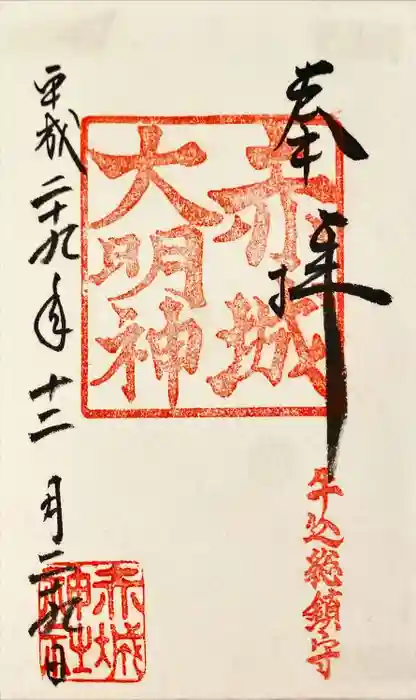 奉拝
牛込総鎮守
赤城
大明神
平成二十九年十二月二十九日
赤城
神社